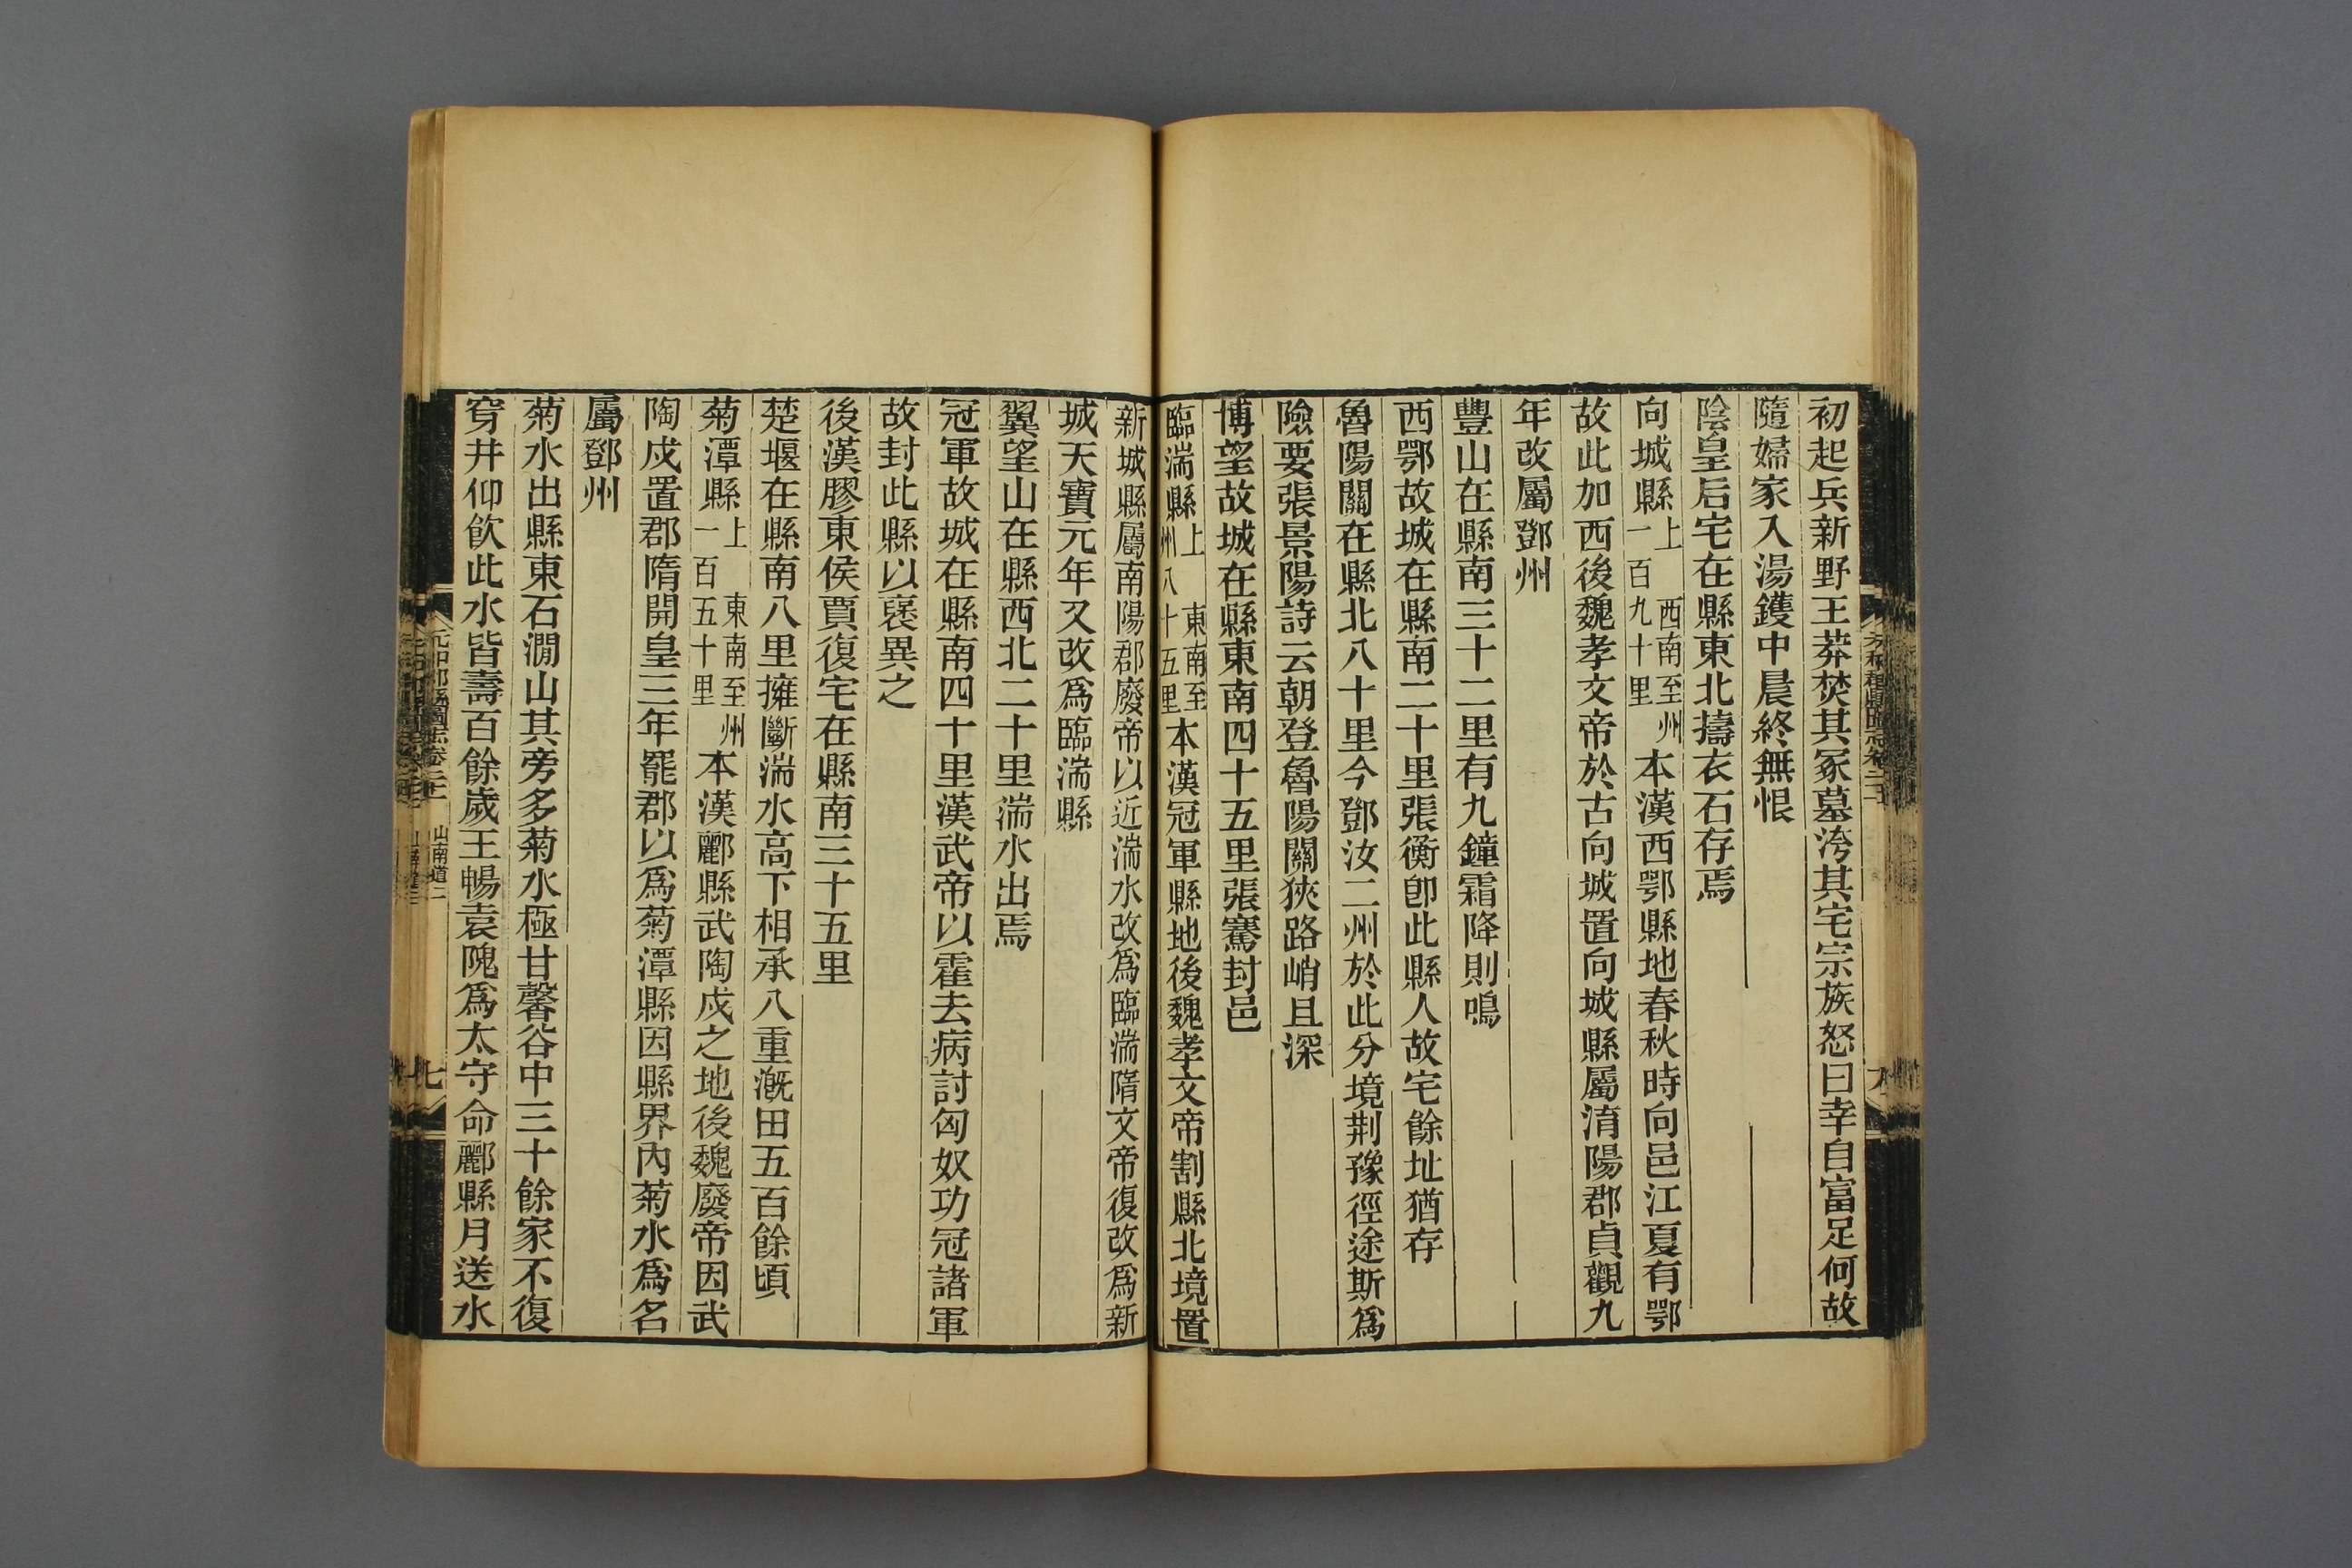 初起兵新野王莽焚其冢墓洿其宅宗族怒曰幸自富足何故
隨婦家入湯鑊中晨終無恨
陰皇后宅在縣東北擣衣石存焉
向城縣上 西南至州一百九十里 本漢西鄂縣地春秋時向邑江夏有鄂
故此加西後魏孝文帝於古向城置向城縣屬淯陽郡貞觀九
年改屬鄧州
豐山在縣南三十二里有九鐘霜降則鳴
西鄂故城在縣南二十里張衡卽此縣人故宅餘址猶存
魯陽關在縣北八十里今鄧汝二州於此分境荆豫徑途斯爲
險要張景陽詩云朝登魯陽關狹路峭且深
博望故城在縣東南四十五里張騫封邑
臨湍縣上 東南至州八十五里 本漢冠軍縣地後魏孝文帝割縣北境置
新城縣屬南陽郡廢帝以近湍水改爲臨湍隋文帝復改爲新
城天寶元年又改爲臨湍縣
翼望山在縣西北二十里湍水出焉
冠軍故城在縣南四十里漢武帝以霍去病討匈奴功冠諸軍
故封此縣以襃異之
後漢膠東侯賈復宅在縣南三十五里
楚堰在縣南八里擁斷湍水高下相承八重漑田五百餘頃
菊潭縣上 東南至州一百五十里 本漢酈縣武陶戍之地後魏廢帝因武
陶戍置郡隋開皇三年罷郡以爲菊潭縣因縣界內菊水爲名
屬鄧州
菊水出縣東石澗山其旁多菊水極甘馨谷中三十餘家不復
穿井仰飮此水皆壽百餘歲王暢袁隗爲太守命酈縣月送水
元和郡縣圖志卷二十一 山南道二
七